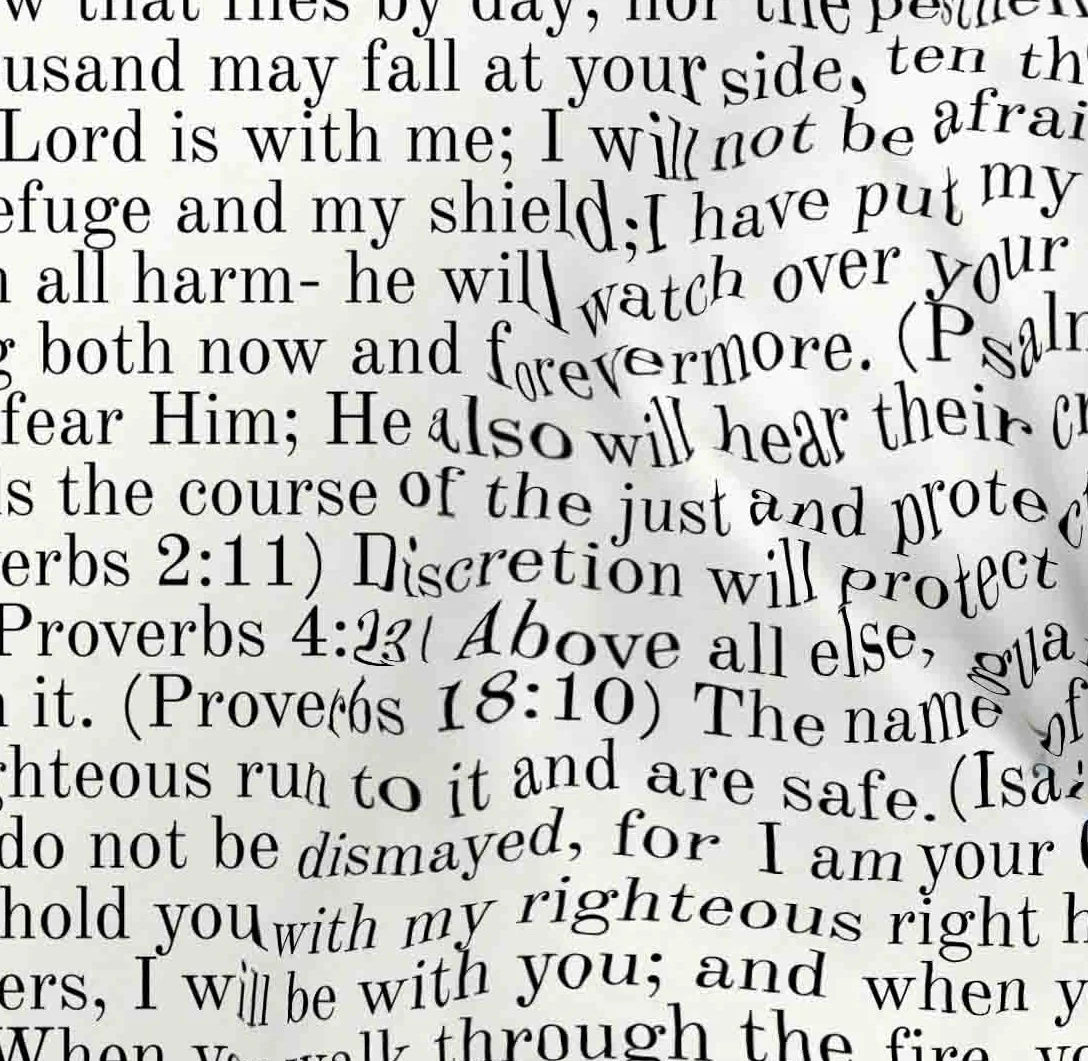 w that flies by day, nor the pestilen
usand may fall at your side, ten th
Lord is with me; I will not be afrai
efuge and my shield; I have put my
all harm- he will watch over your
g both now and forevermore. (Psalm
fear Him; He also will hear their cr
ls the course of the just and protec
erbs 2:11) Discretion will protect
Proverbs 4:23( Above all else, gua
it. (Proverbs 18:10) The name of
ghteous run to it and are safe. (Isai
do not be dismayed, for I am your
hold you with my righteous right h
ers, I will be with you; and when y
When you walk through the fire, yo